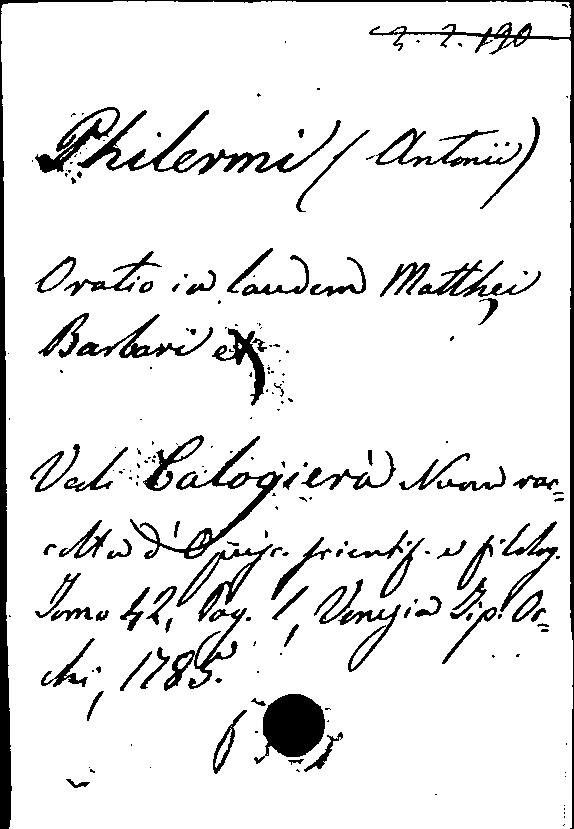 2. 2. 190
Philermi (Antonii)
Oratio in laudem Matthęi
Barbari
Vedi Calogierà Nuova rac=
colta d'Opusc. scientif. e filolog.
Tomo 42, Pag. 1, Venezia Tip. Oc=
chi, 1785.